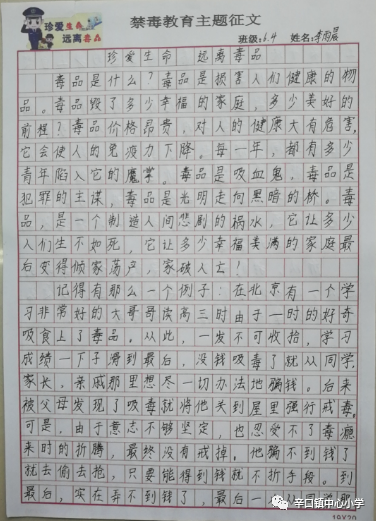 珍爱生命
远离毒品
禁毒教育主题征文
班级：6.4 姓名：李雨晨
珍爱生命 远离毒品
毒品是什么？毒品是损害人们健康的物
品。毒品毁了多少幸福的家庭，多少美好的
前程？毒品价格昂贵，对人的健康大有危害，
它会使人的免疫力下降。每一年，都有多少
青年陷入它的魔掌。毒品是吸血鬼，毒品是
犯罪的主谋，毒品是光明走向黑暗的桥。毒
品，是一个制造人间悲剧的祸水，它让多少
人们生不如死，它让多少幸福美满的家庭最
后变得倾家荡产，家破人亡！
记得有那么一个例子：在北京有一个学
习非常好的大哥哥读高三时由于一时的好奇
吸食上了毒品。从此，一发不可收拾，学习
成绩一下子滑到最后，没钱吸毒了就从同学，
家长，亲戚那里想尽一切办法地骗钱。后来
被父母发现了吸毒就将他关到屋里强行戒毒。
可是，由于意志不够坚定，也忍受不了毒瘾
来时的折腾，最终没有戒掉。他骗不到钱了
就去偷去抢，只要能得到钱就不折手段。到
最后，实在弄不到钱了，最后一
辛口镇中心小学
19X20